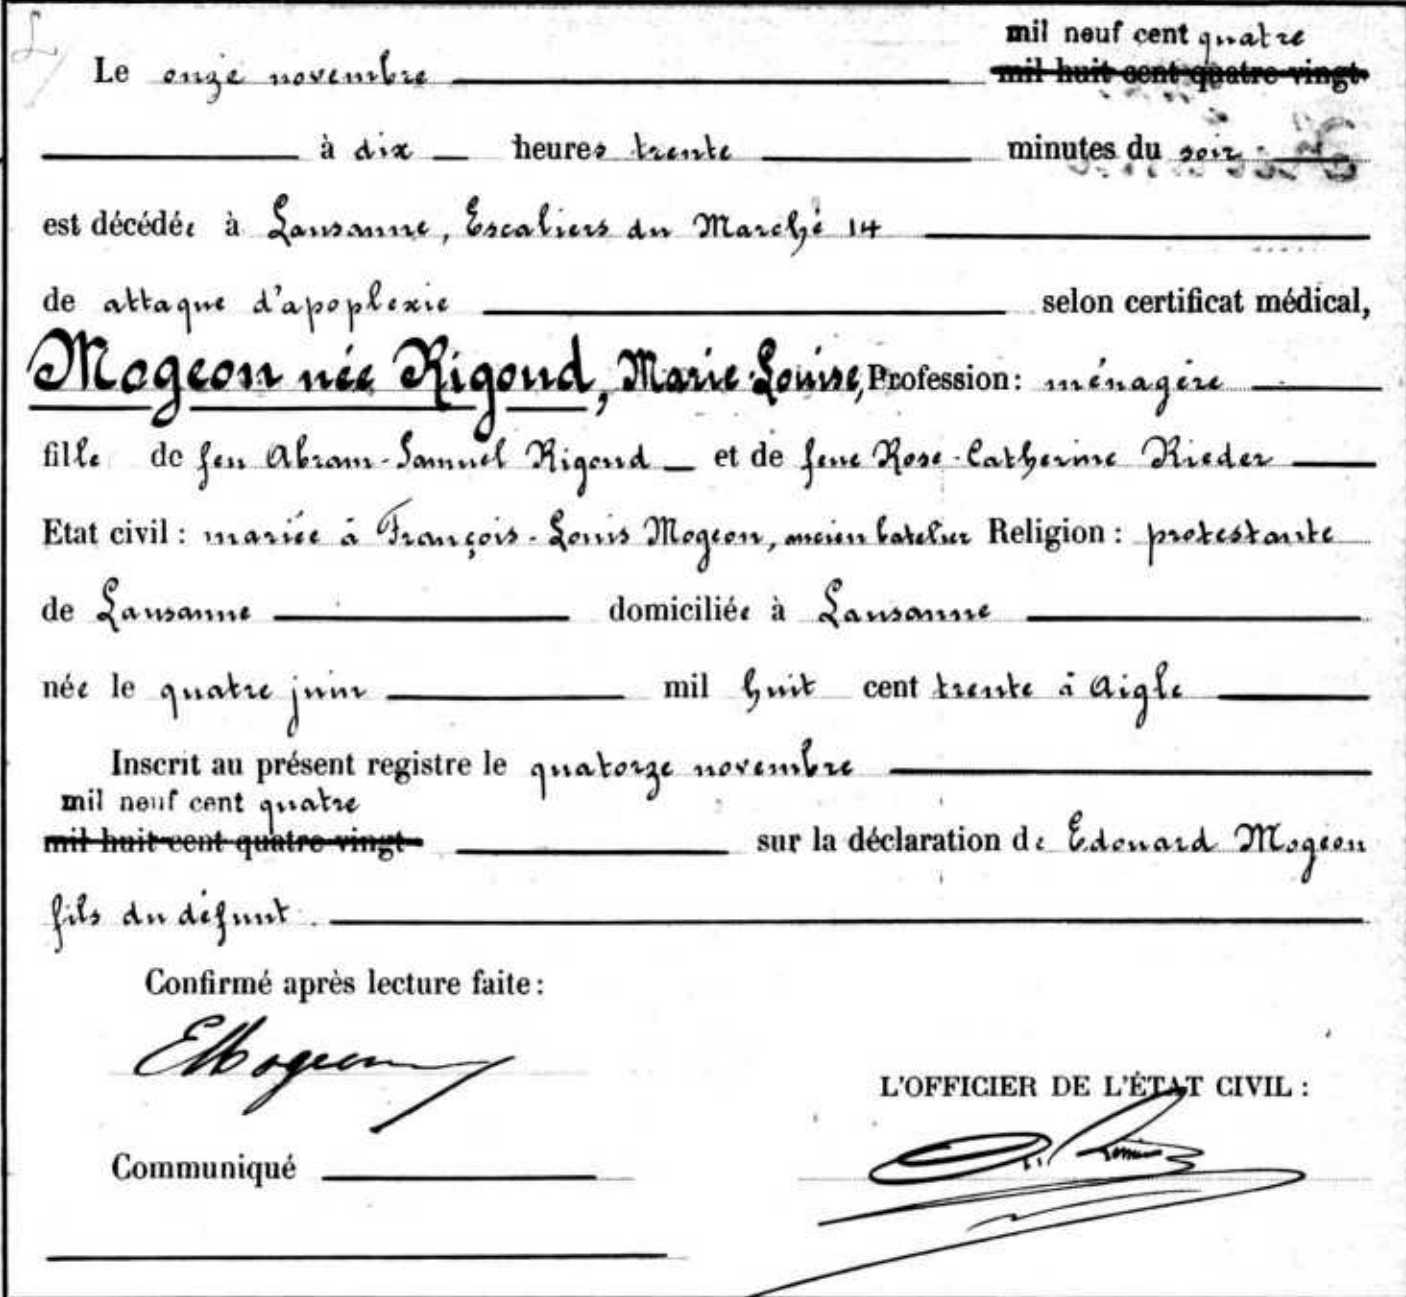 mil neuf cent quatre
Le onze novembre mil huit cent quatre-vingt
à dix heures trente minutes du soir
est décédée à Lausanne, Escaliers du Marché 14
de attaque d'apoplexie selon certificat médical,
Mogeon née Rigoud, Marie-Louise, Profession: ménagère
fille de feu Abram-Samuel Rigoud et de feue Rose-Catherine Rieder
Etat civil: mariée à François-Louis Mogeon, ancien batelier Religion: protestante
de Lausanne domiciliée à Lausanne
née le quatre juin mil huit cent trente à Aigle
Inscrit au présent registre le quatorze novembre
mil neuf cent quatre
mil huit cent quatre-vingt sur la déclaration de Edouard Mogeon
fils du défunt.
Confirmé après lecture faite:
EMogeon
L'OFFICIER DE L'ÉTAT CIVIL:
Communiqué